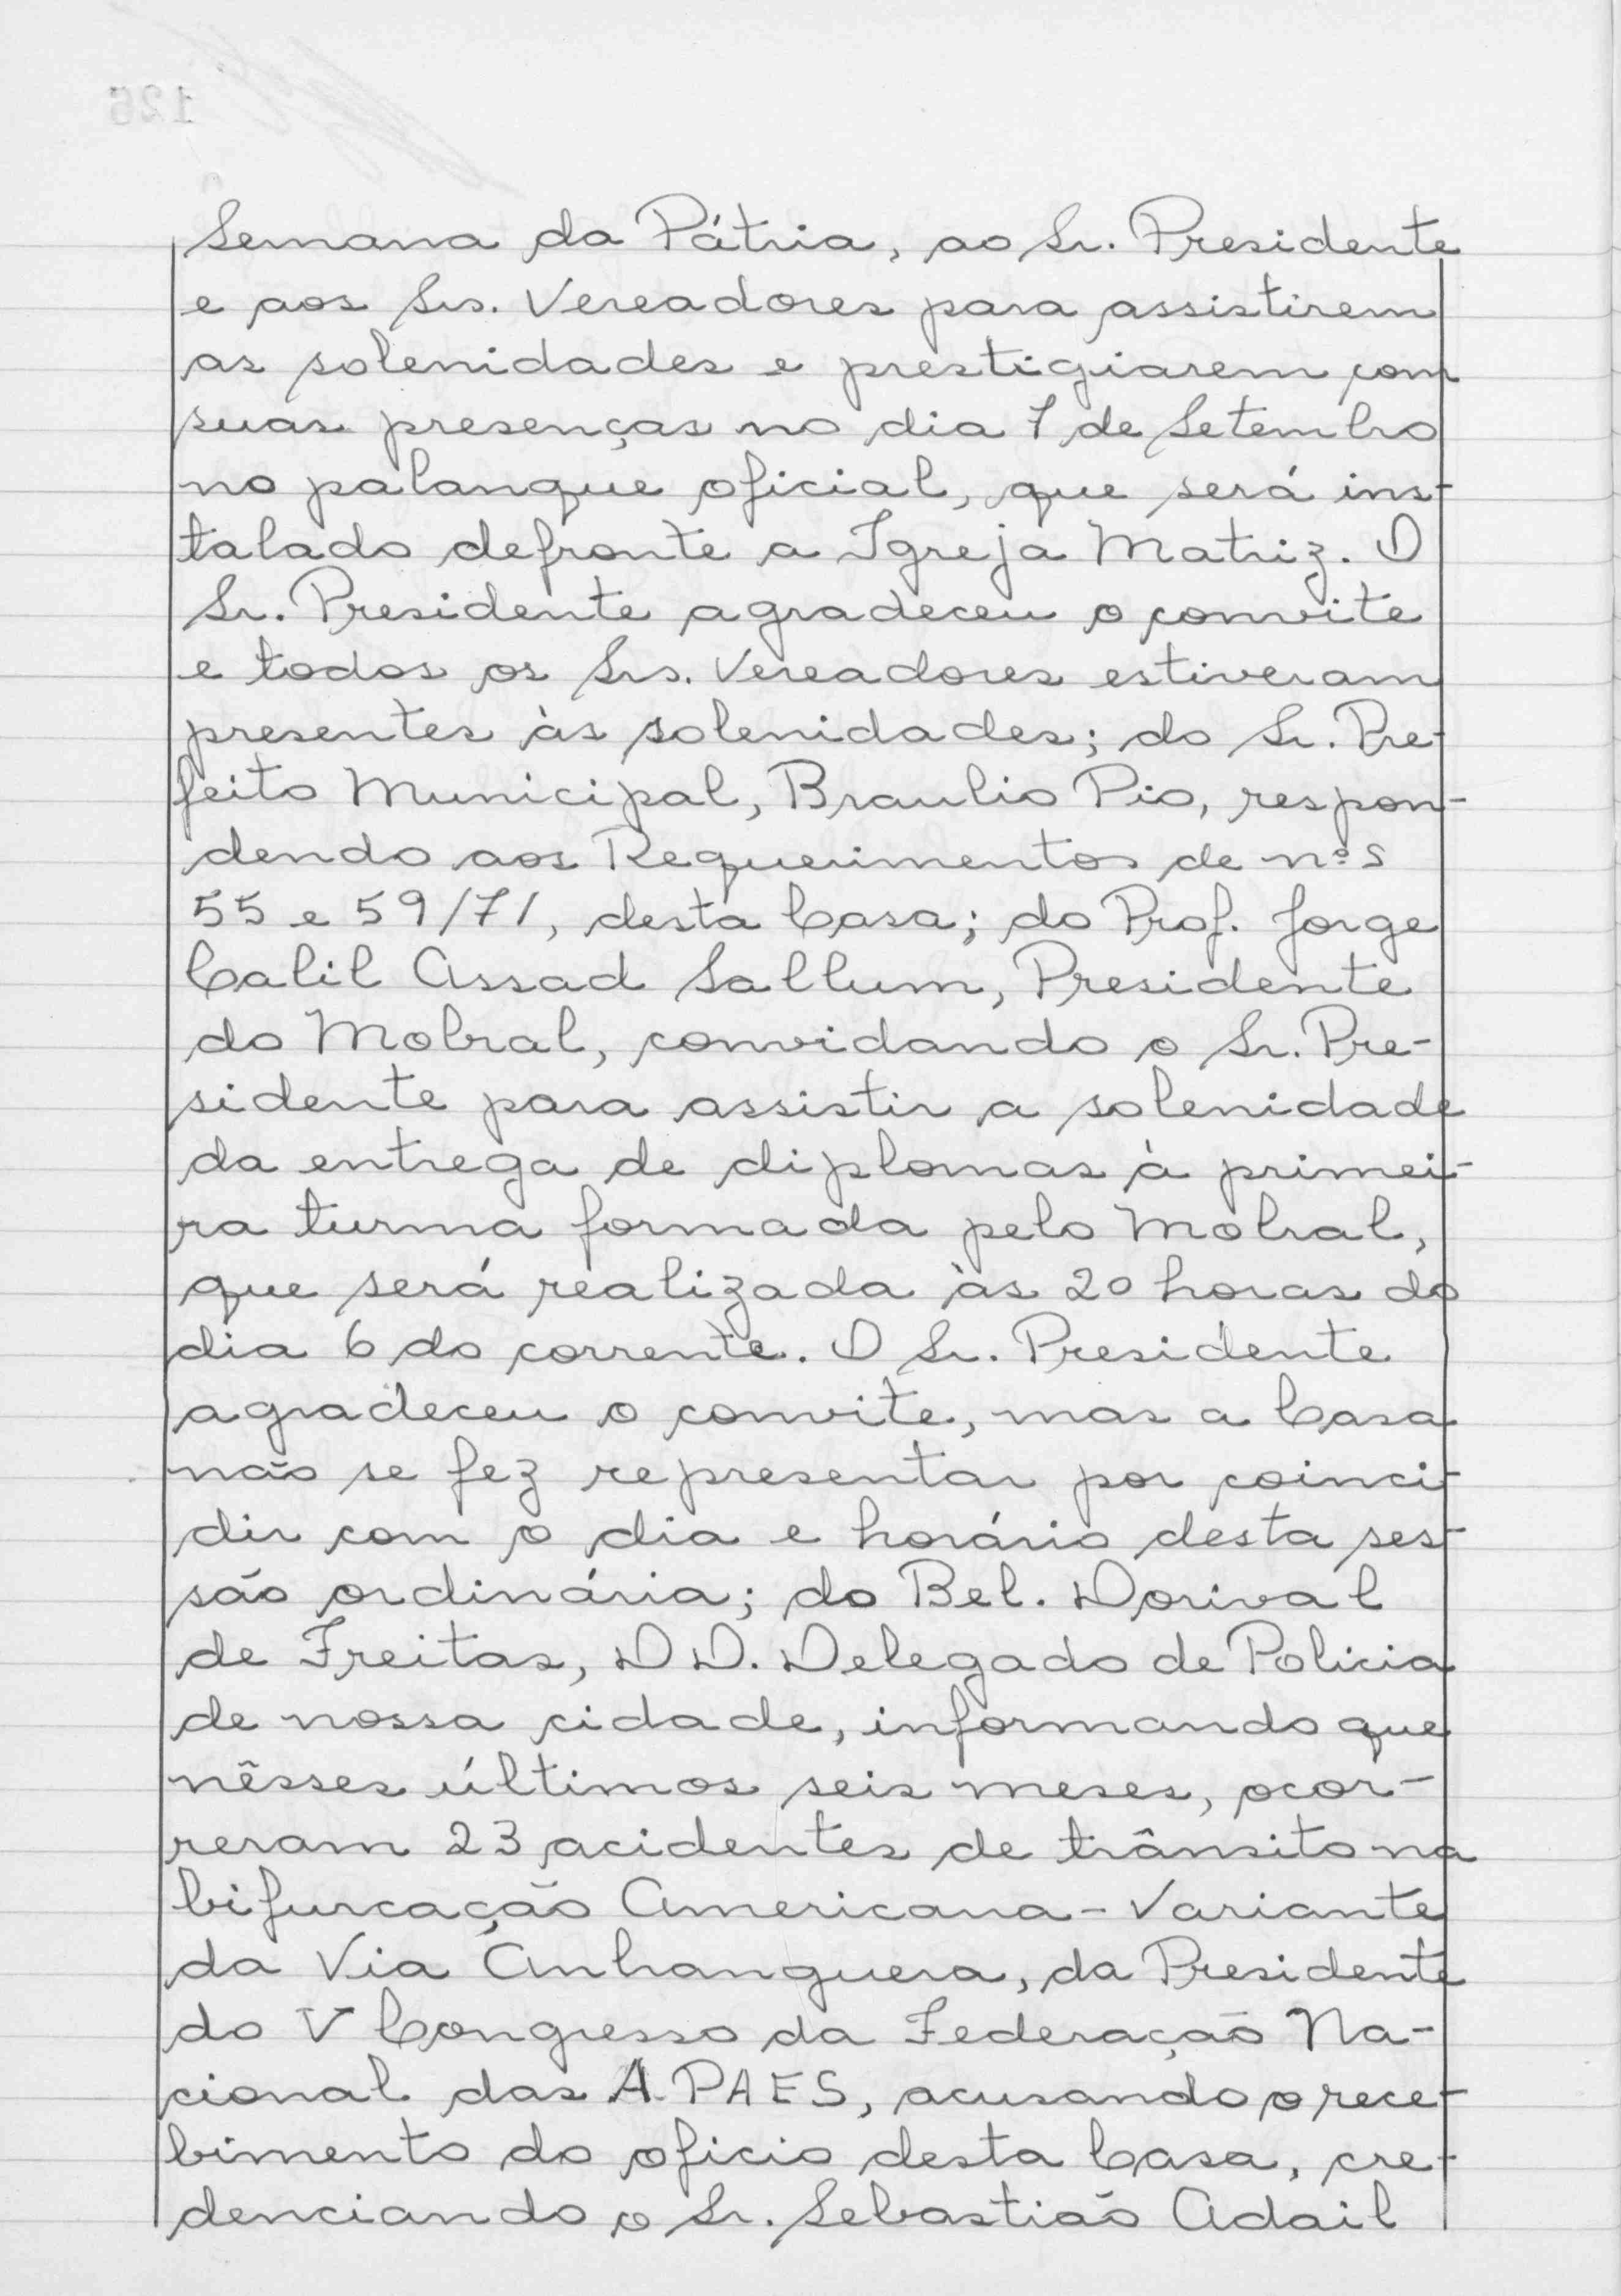 Semana da Pátria, ao Sr. Presidente
e aos Srs. Vereadores para assistirem
as solenidades e prestigiarem com
suas presenças no dia 7 de Setembro
no palanque oficial, que será ins-
talado defronte a Igreja Matriz. O
Sr. Presidente agradeceu o convite
e todos os Srs. Vereadores estiveram
presentes às solenidades; do Sr. Pre-
feito Municipal, Braulio Pio, respon-
dendo aos Requerimentos de nºs
55 e 59/71, desta Casa; do Prof. Jorge
Calil Assad Sallum, Presidente
do Mobral, convidando o Sr. Pre-
sidente para assistir a solenidade
da entrega de diplomas à primei-
ra turma formada pelo Mobral,
que será realizada às 20 horas do
dia 6 do corrente. O Sr. Presidente
agradeceu o convite, mas a Casa
não se fez representar por coinci-
dir com o dia e horário desta ses-
são ordinária; do Bel. Dorival
de Freitas, DD. Delegado de Policia
de nossa cidade, informando que
nêsses últimos seis meses, ocor-
reram 23 acidentes de trânsito na
bifurcação Americana - Variante
da Via Anhanguera, da Presidente
do V Congresso da Federação Na-
cional das APAES, acusando o rece-
bimento do oficio desta Casa, cre-
denciando o Sr. Sebastião Adail